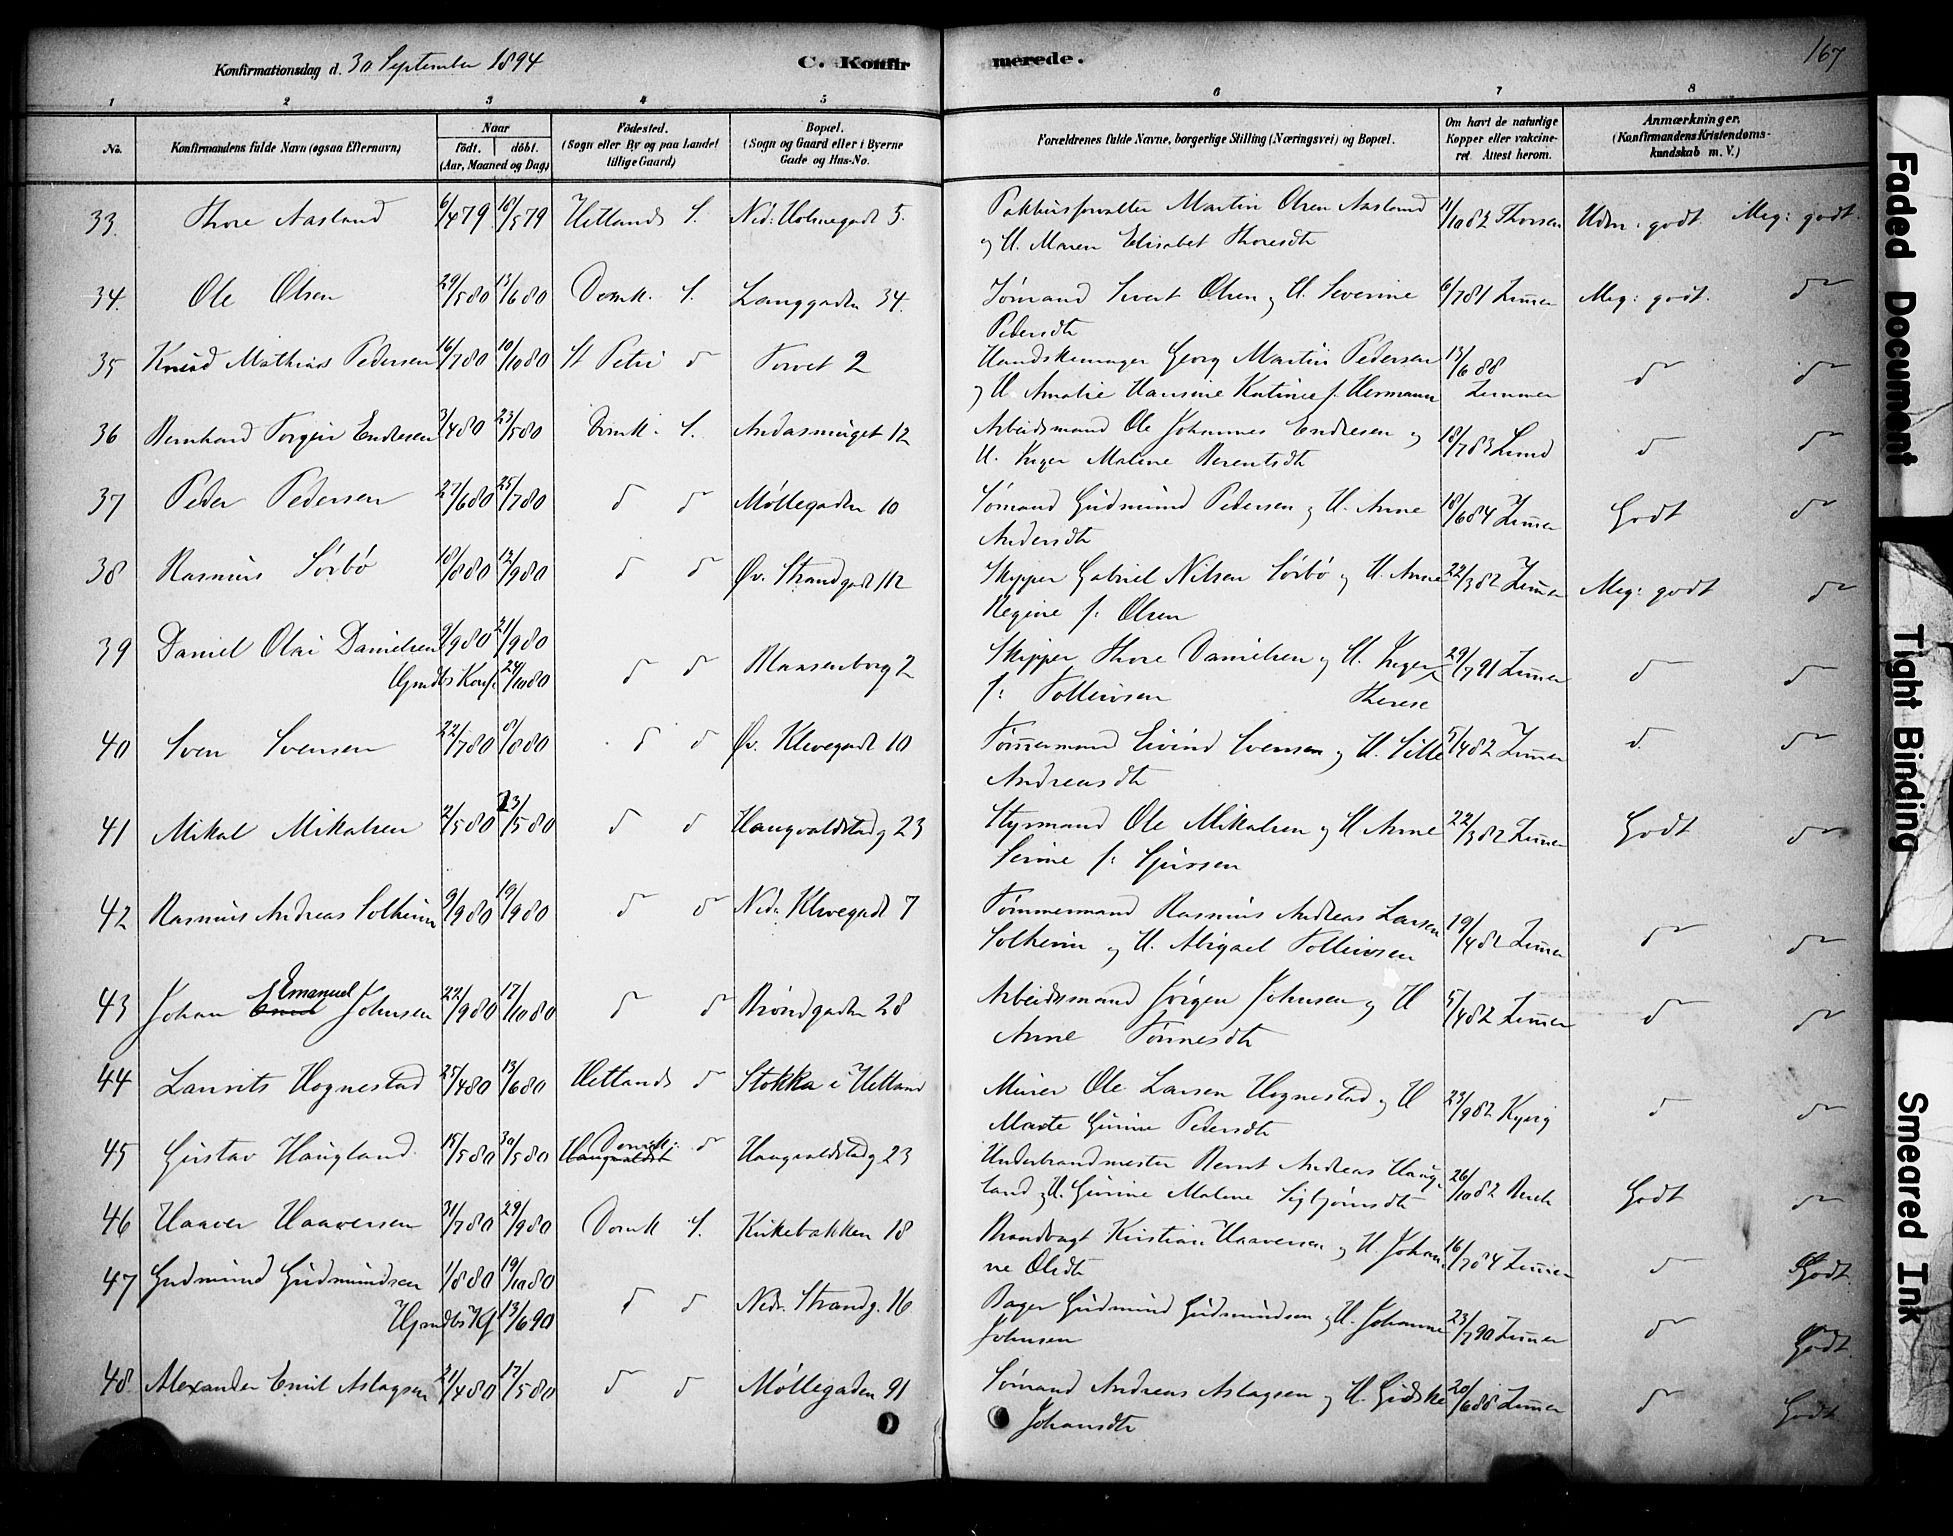 Konfirmationsdag d. 30 September 1894
C. Konfirmerede.
167
1 2 3 4 5 6 7 8
No. Konfirmandens fulde Navn (ogsaa Efternavn) Naar født. døbt. (Aar, Maaned og Dag) Fødested. (Sogn eller By og paa Landet tillige Gaard) Bopæl. (Sogn og Gaard eller i Byerne Gade og Hus-No. Forældrenes fulde Navne, borgerlige Stilling (Næringsvei) og Bopæl. Om havt de naturlige Kopper eller vakcineret. Attest herom. Anmærkninger. (Konfirmandens Kristendomskundskab m. V.)
33. Thore Aasland 6/4 79 18/5 79 Hetlands S. Ned. Holmegadt 5. Pakhusforvalter Martin Olsen Aasland 11/10 82 Thorsen Udm: godt. Meg: godt.
og H. Maren Elisabet Thoresdtr
34. Ole Olsen 29/5 80 13/6 80 Domk. S. Langgaden 34. Sømand Sivert Olsen og H. Severine 6/7 81 Zimmer Meg: godt. do
Pedersdtr
35 Knud Mathias Pedersen 16/7 80 10/10 80 St Petri do Torvet 2 Handskemager Georg Martin Pedersen 13/6 88 do do
og H Amalie Hansine Katince f. Hermann Zimmer
36 Bernhard Torgeir Endresen 3/4 80 23/5 80 Domk. S. Andasmuget 12 Arbeidsmand Ole Johannes Endresen og 18/7 83 Lund do do
H. Inger Malene Berentsdtr
37 Peder Pedersen 27/6 80 25/7 80 do do Møllegaden 10 Sømand Gudmund Pedersen og H. Anne 18/6 84 Zimmer Godt do
Andersdtr
38 Rasmus Sørbø 18/8 80 12/9 80 do do Øv. Strandgadt 112 Skipper Gabriel Nilsen Sørbø og H. Anne 22/3 82 Zimmer Meg: godt do
Regine f: Olsen
39 Daniel Olai Danielsen 9/9 80 21/9 80 do do Blaasenborg 2 Skipper Thore Danielsen og H. Inger 29/7 91 Zimmer do do
Hjmdbs Konf. 24/10 80 f: Tolleivsen Therese
40 Sven Svensen 22/7 80 8/8 80 do do Øv. Klevegadt 10 Tømmermand Eivind Svensen og H. Sille 5/4 82 Zimmer do do
Andreasdtr
41 Mikal Mikalsen 2/5 80 23/5 80 do do Haugvaldstadg 23 Styrmand Ole Mikalsen og H Anne 22/3 82 Zimmer Godt do
Serine f: Sjursen
42 Rasmus Andreas Solheim 9/9 80 19/9 80 do do Ned. Klevegadt 7 Tømmermand Rasmus Andreas Larsen 19/4 82 Zimmer do do
Solheim og H. Abigael Tolleivsen
43 Johan Emanuel Johnsen 22/9 80 17/10 80 do do Brøndgaden 28 Arbeidsmand Jørgen Johnsen og H 5/4 82 Zimmer do do
Anne Tønnesdtr
44 Laurits Hognestad 25/4 80 13/6 80 Hetlands do Stokka i Hetland Murer Ole Larsen Hognestad og H 23/9 82 Kyvig do do
Marte Gurine Pedersdtr
45 Gustav Haugland 15/5 80 30/5 80 Domk: do Haugvaldstadg 23 Underbrandmester Bernt Andreas Haug- 26/10 82
Haugvaldst land og H. Gurine Malene Sigbjørnsdtr Godt do
46 Haaver Haaversen 31/7 80 29/9 80 Domk S. Kirkebakken 18 Brandvagt Kristian Haaversen og H. Johan- 16/7 84 Zimmer do Godt.
ne Olsdtr
47 Gudmund Gudmundsen 1/8 80 19/10 80 do do Nedr. Strandg. 16 Bager Gudmund Gudmundsen og H. Johanne 23/7 90 Zimmer do Godt.
Hjmdbs Kf 13/6 90 Johnsen
48. Alexander Emil Aslagsen 21/4 80 17/5 80 do do Møllegaden 91 Sømand Andreas Aslagsen og H. Gidske 20/6 88 Zimmer do Godt
Johansdtr
Faded Document
Tight Binding
Smeared Ink